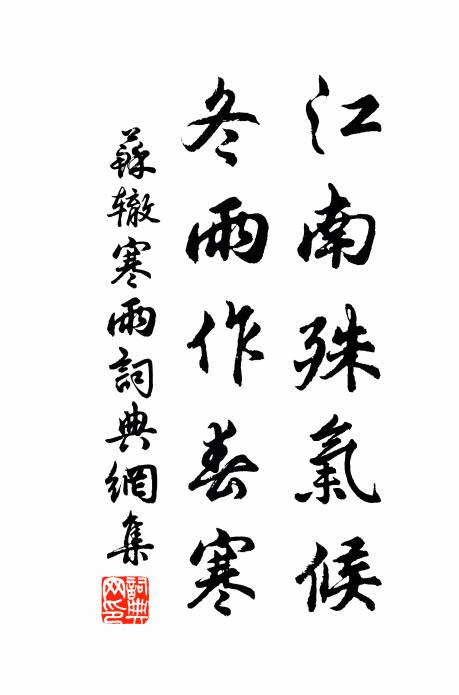 江南殊氣候
冬雨作春寒
蘇轍寒雨詞典網集
詞典網印